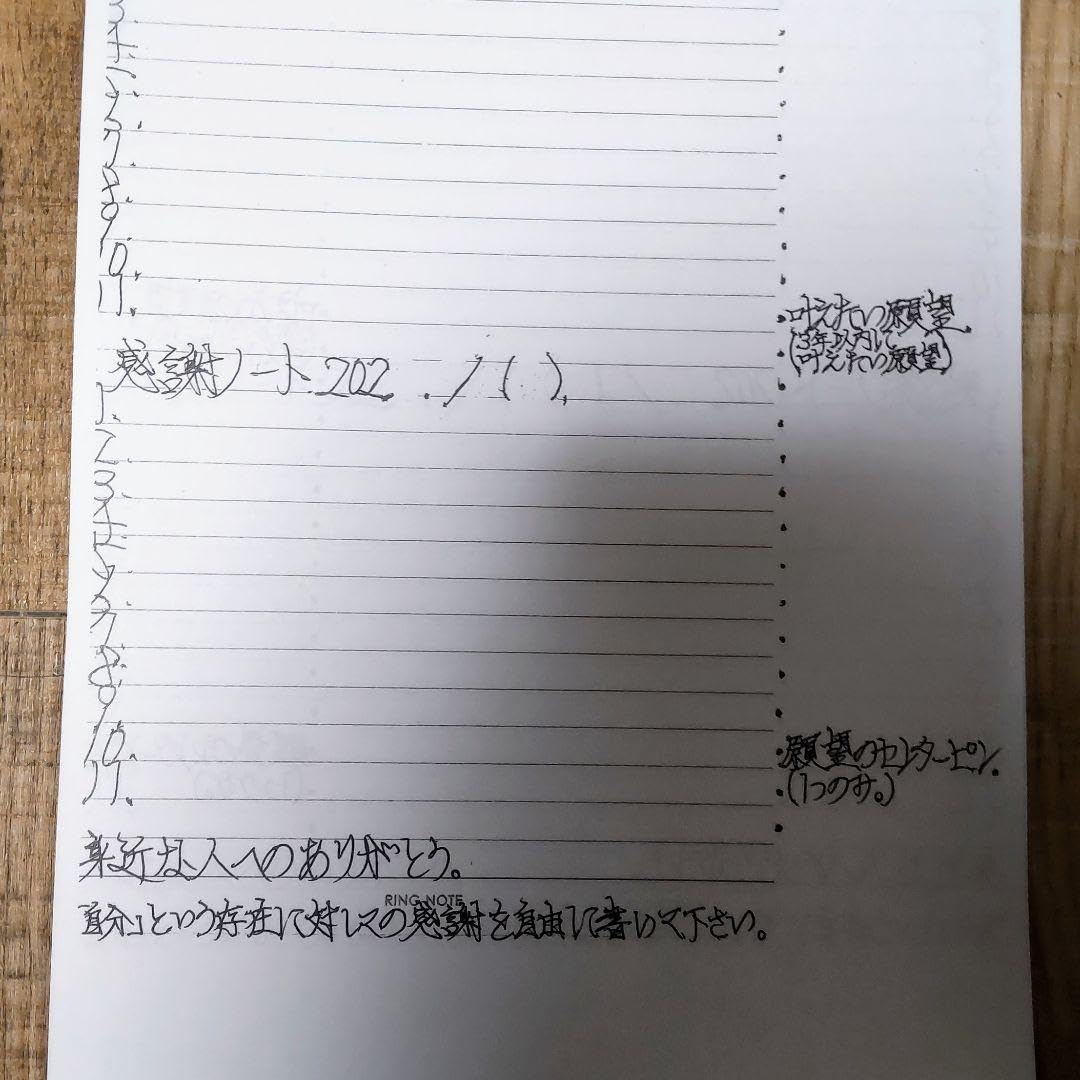 3.
4.
5.
6.
7.
8.
9.
10.
11.
叶えたい願望
(3年以内に
叶えたい願望)
感謝ノート202 . /( ).
1.
2.
3.
4.
5.
6.
7.
8.
9.
10.
11.
願望のセンターピン.
(1つのみ。)
身近な人へのありがとう。
RING NOTE
「自分」という存在に対しての感謝を自由に書いて下さい。